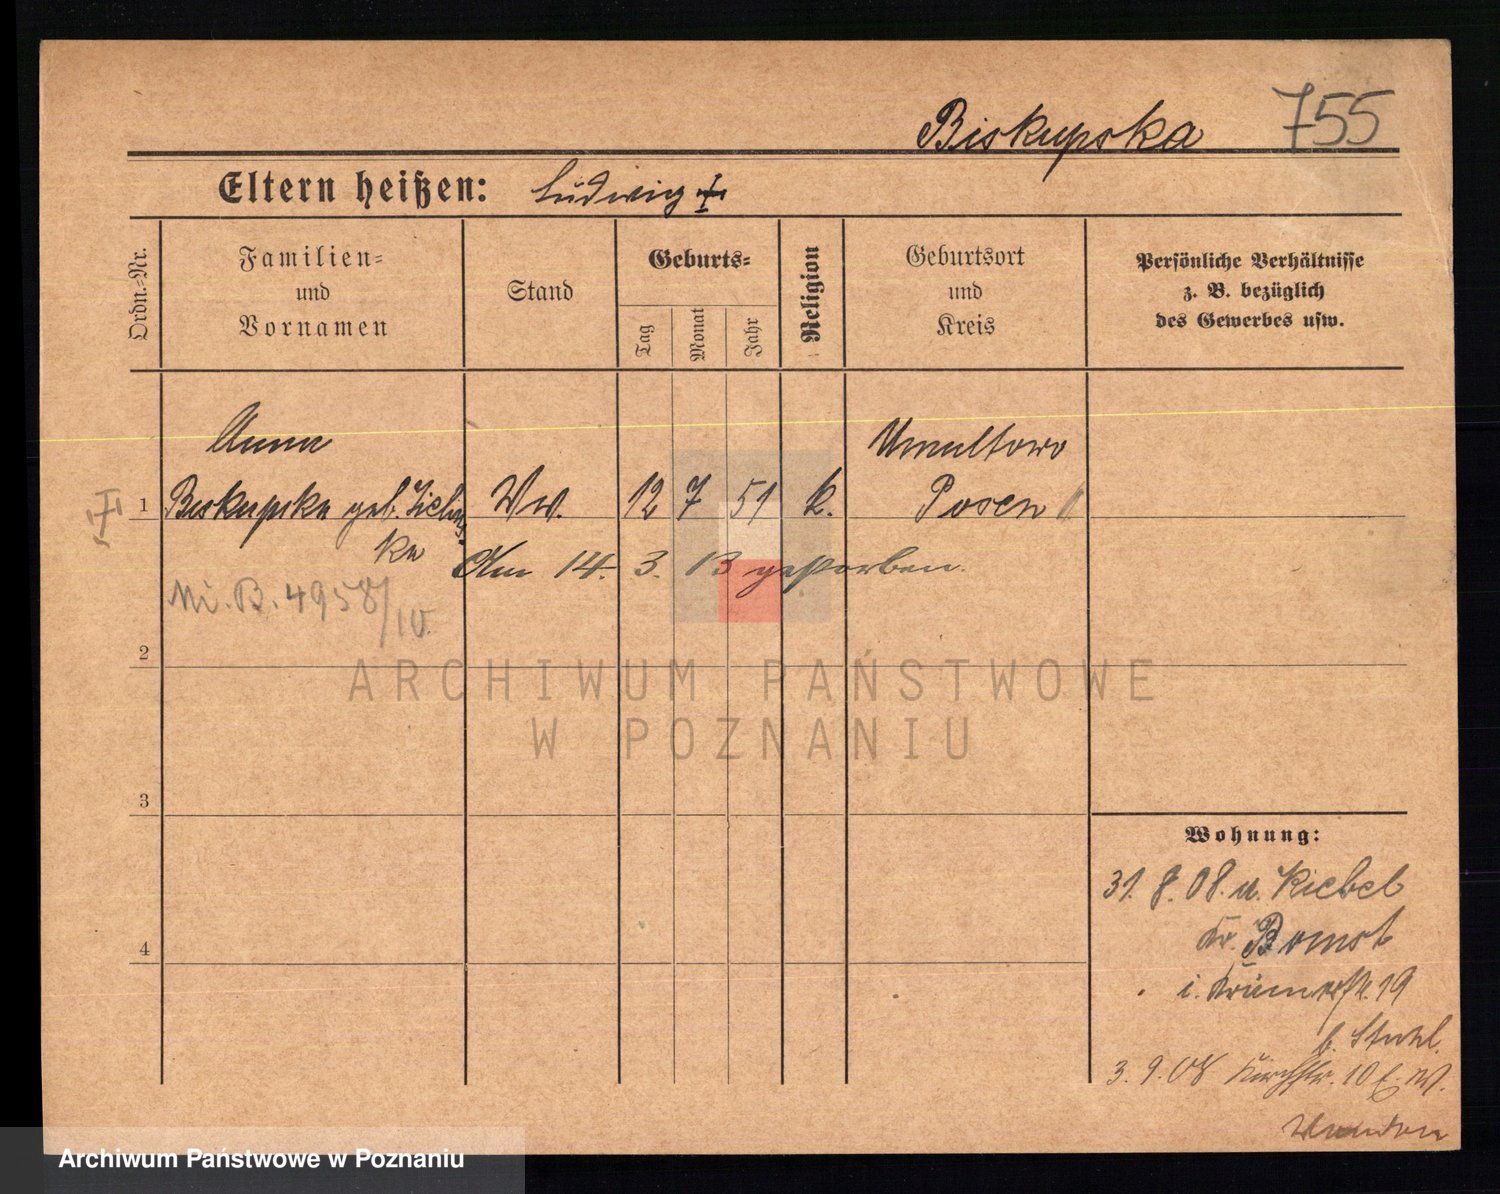 Biskupska 755
Eltern heißen: Ludwig
Ordn.-Nr.
Familien-
und
Vornamen
Stand
Geburts-
Tag
Monat
Jahr
Religion
Geburtsort
und
Kreis
Persönliche Verhältnisse
z. B. bezüglich
des Gewerbes usw.
Anna
Umultowo
1 Biskupska geb. Ww. 12 7 51 k. Posen
ka
Am 14. 3. 13 gestorben.
B. 4958/
2
ARCHIWUM PAŃSTWOWE
W POZNANIU
3
Wohnung:
31. 8. 08. u. Kiebel
Kr. Bomst
4
i. 19
b.
3. 9. 08 Kirchstr. 10
Archiwum Państwowe w Poznaniu